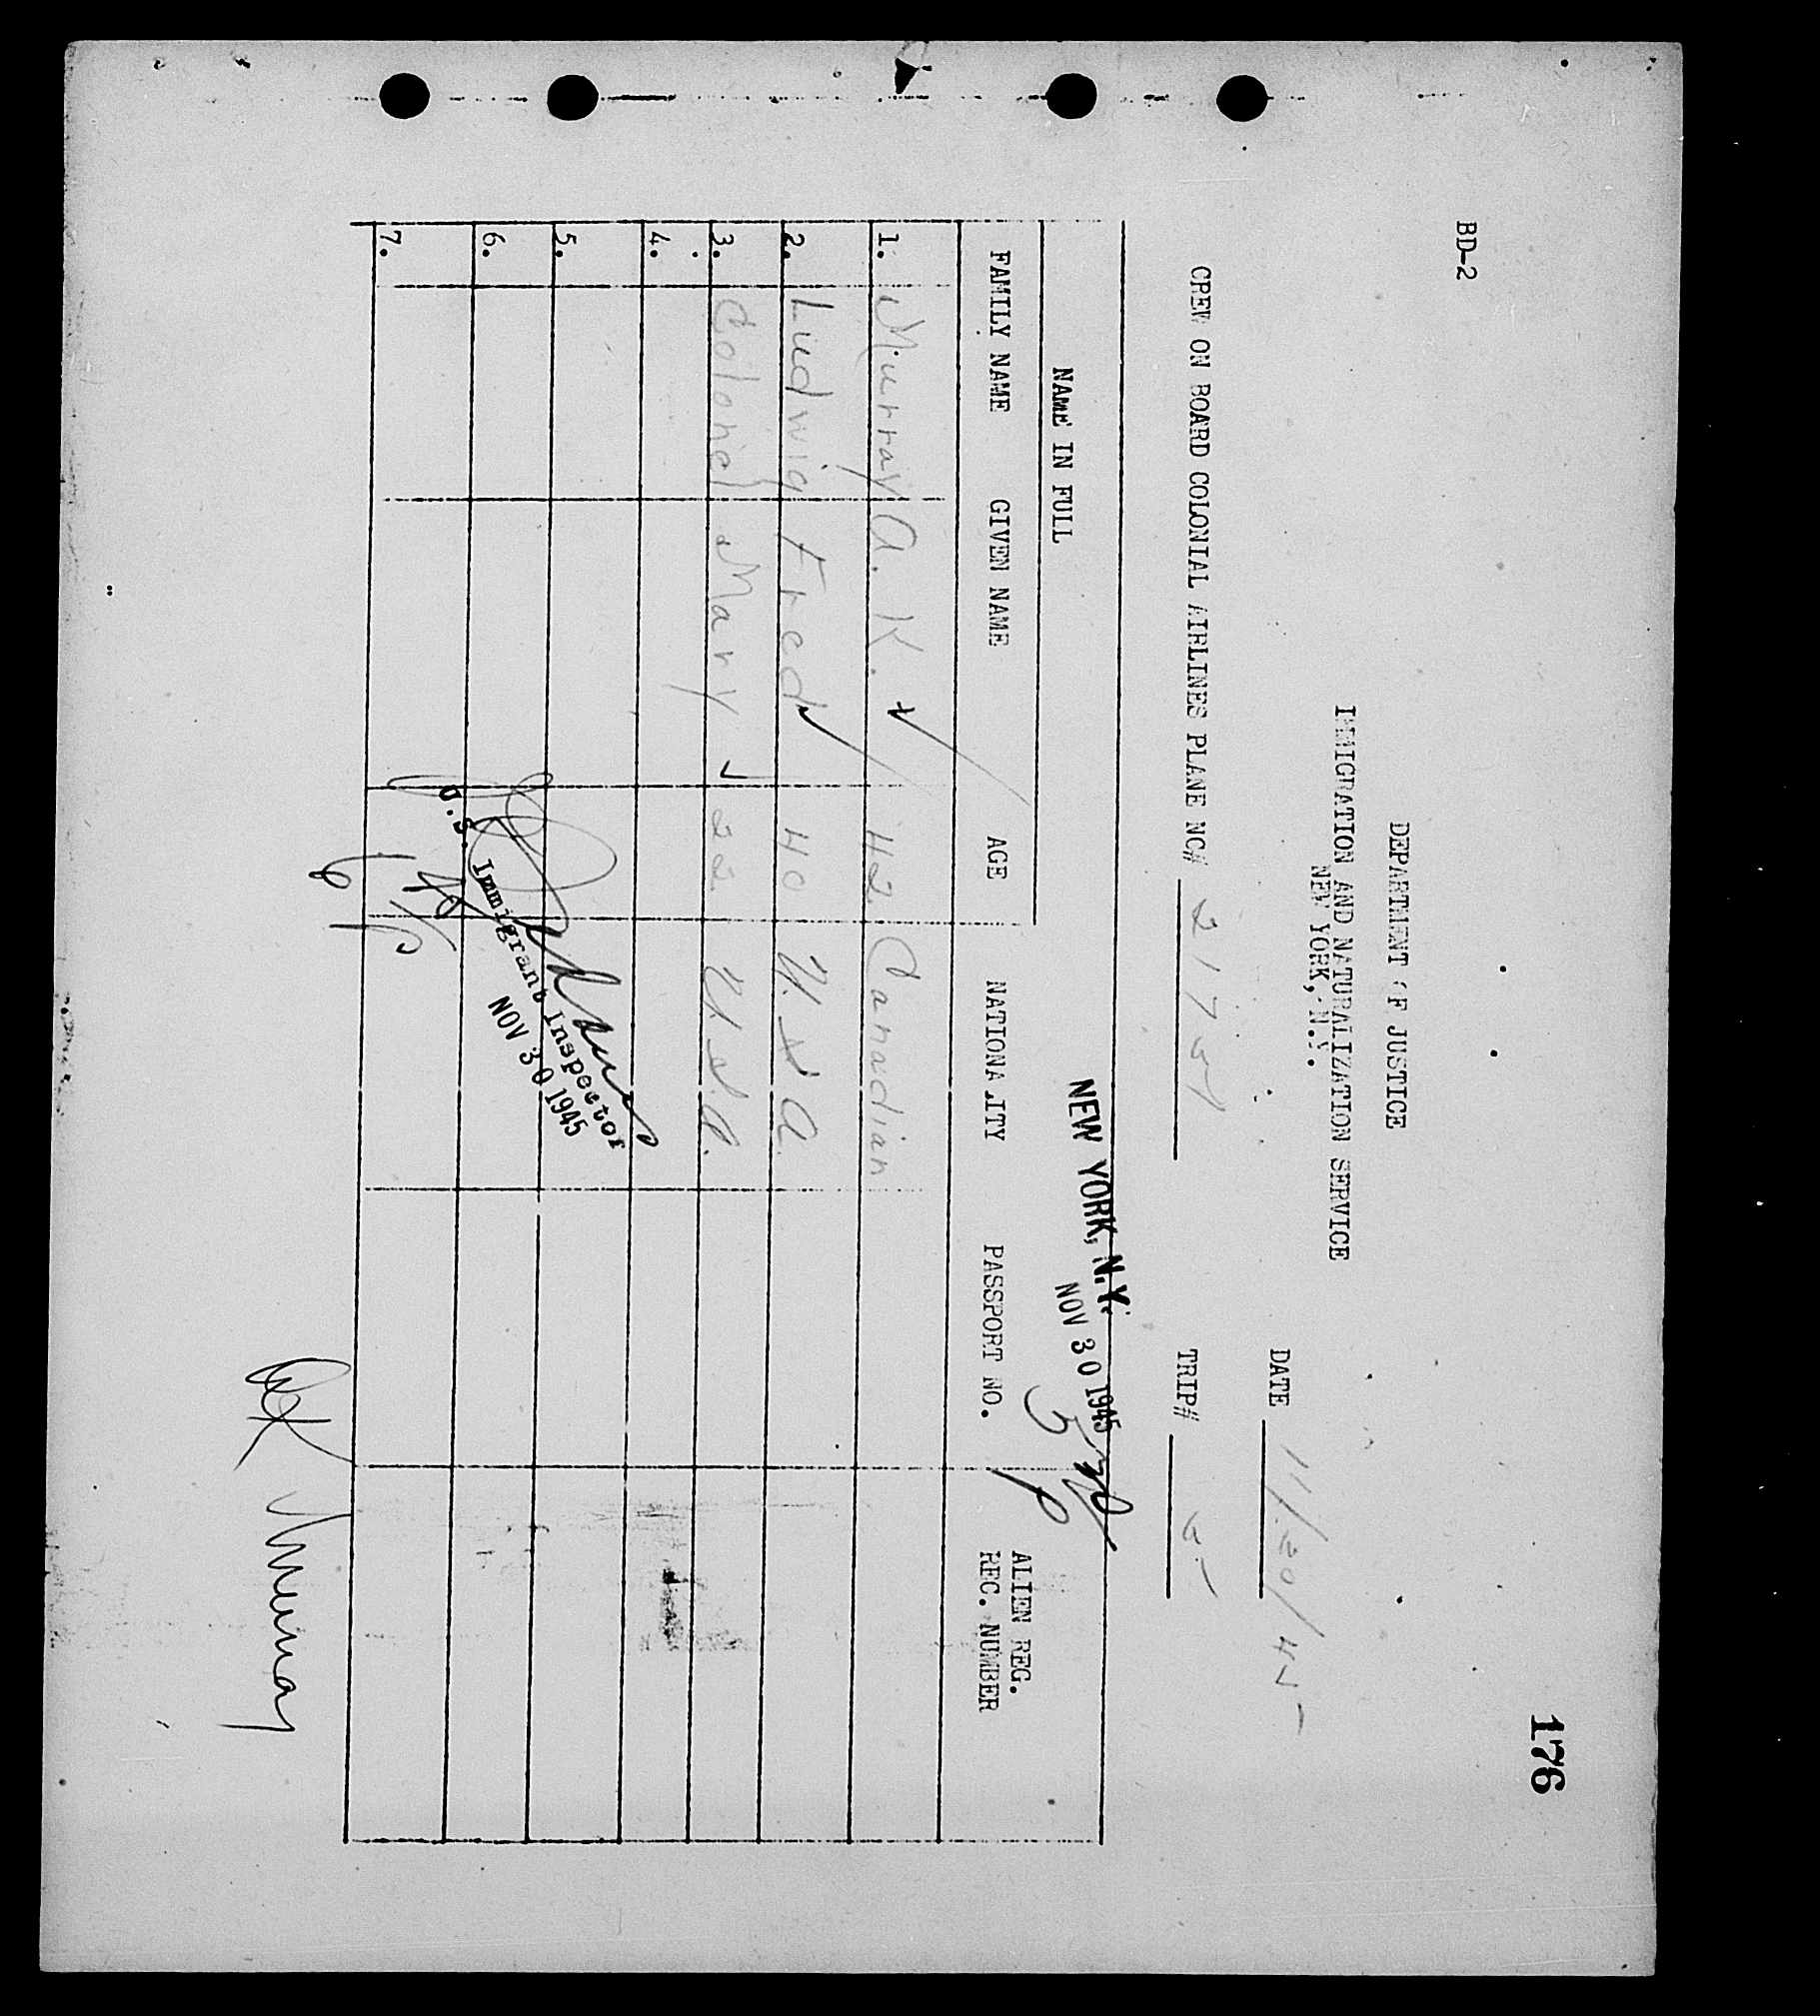 176
BD-2
DEPARTMENT OF JUSTICE
IMMIGRATION AND NATURALIZATION SERVICE
NEW YORK, N.Y.
DATE 11/30/45
CREW ON BOARD COLONIAL AIRLINES PLANE NC# 21757 TRIP# 5
NEW YORK, N.Y. NOV 30 1945
NAME IN FULL
FAMILY NAME GIVEN NAME AGE NATIONALITY PASSPORT NO. ALIEN REG. REC. NUMBER
1. Murray A. K. 42 Canadian
2. Ludwig Fred 40 U.S.A.
3. Mary 22 U.S.A.
4.
5.
6.
7.
U.S. Immigrant Inspector
NOV 30 1945
AK Murray